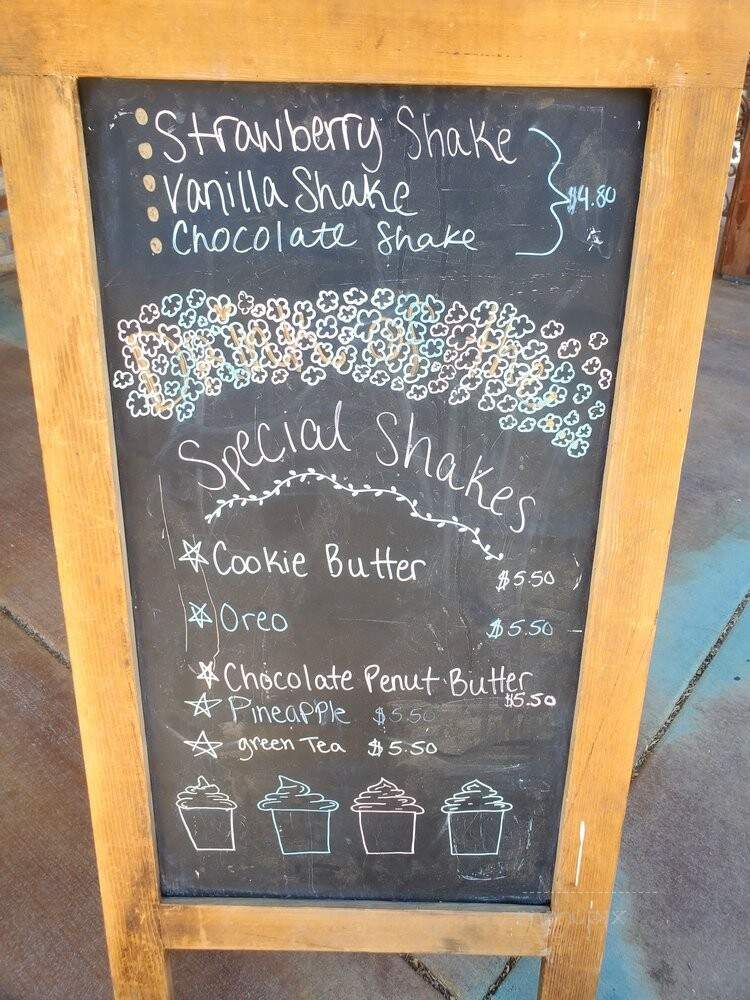 Strawberry Shake
Vanilla Shake
Chocolate Shake
$4.80
Drink of the
Special Shakes
Cookie Butter
$5.50
Oreo
$5.50
Chocolate Penut Butter
$5.50
Pineapple $5.50
green Tea $5.50